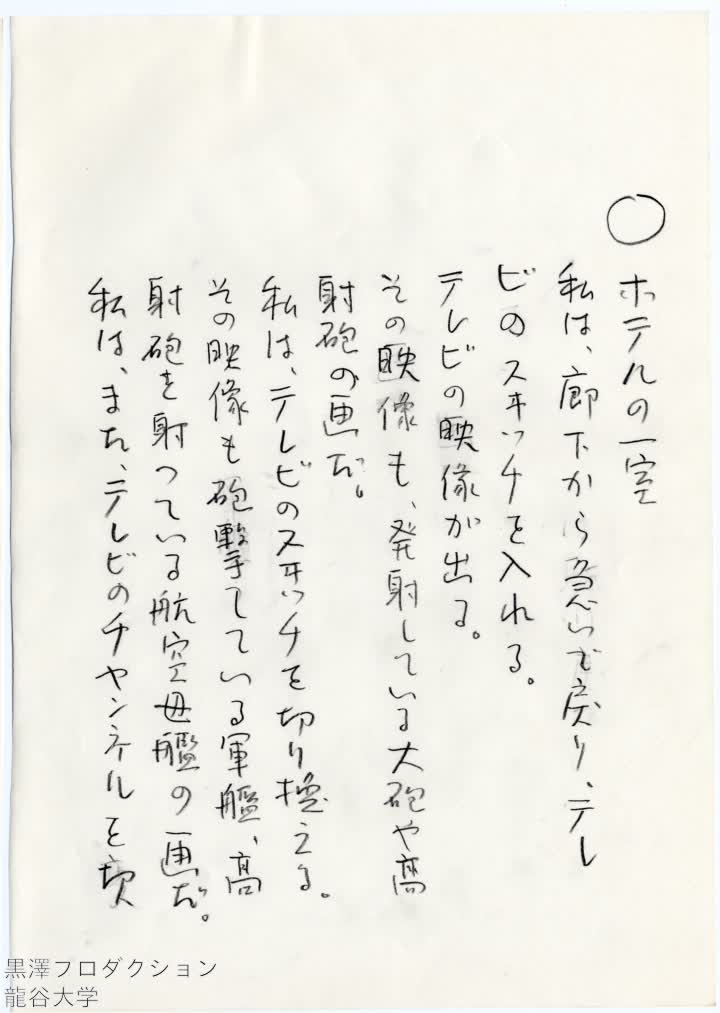 ○
ホテルの一室
私は、廊下から急いで戻り、テレ
ビのスヰッチを入れる。
テレビの映像が出る。
その映像も、発射している大砲や高
射砲の画だ。
私は、テレビのスヰッチを切り換える。
その映像も砲撃している軍艦、高
射砲を射っている航空母艦の画だ。
私は、また、テレビのチャンネルを
黒澤プロダクション
龍谷大学